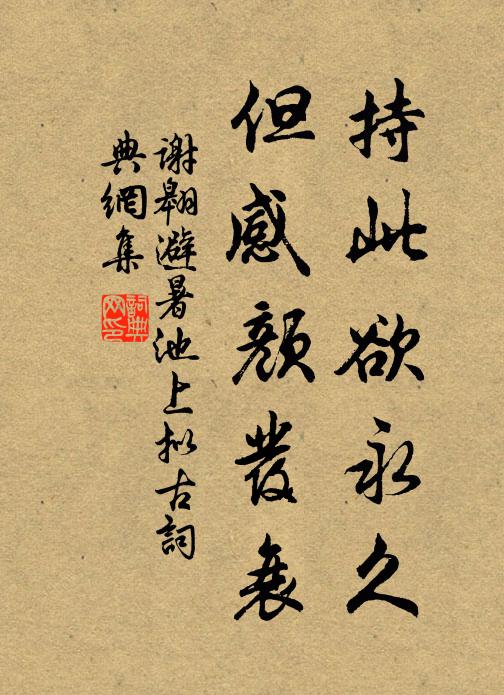 持此欲永久
但感顏發衰
謝翱避暑池上拟古詞
典網集
詞典网印